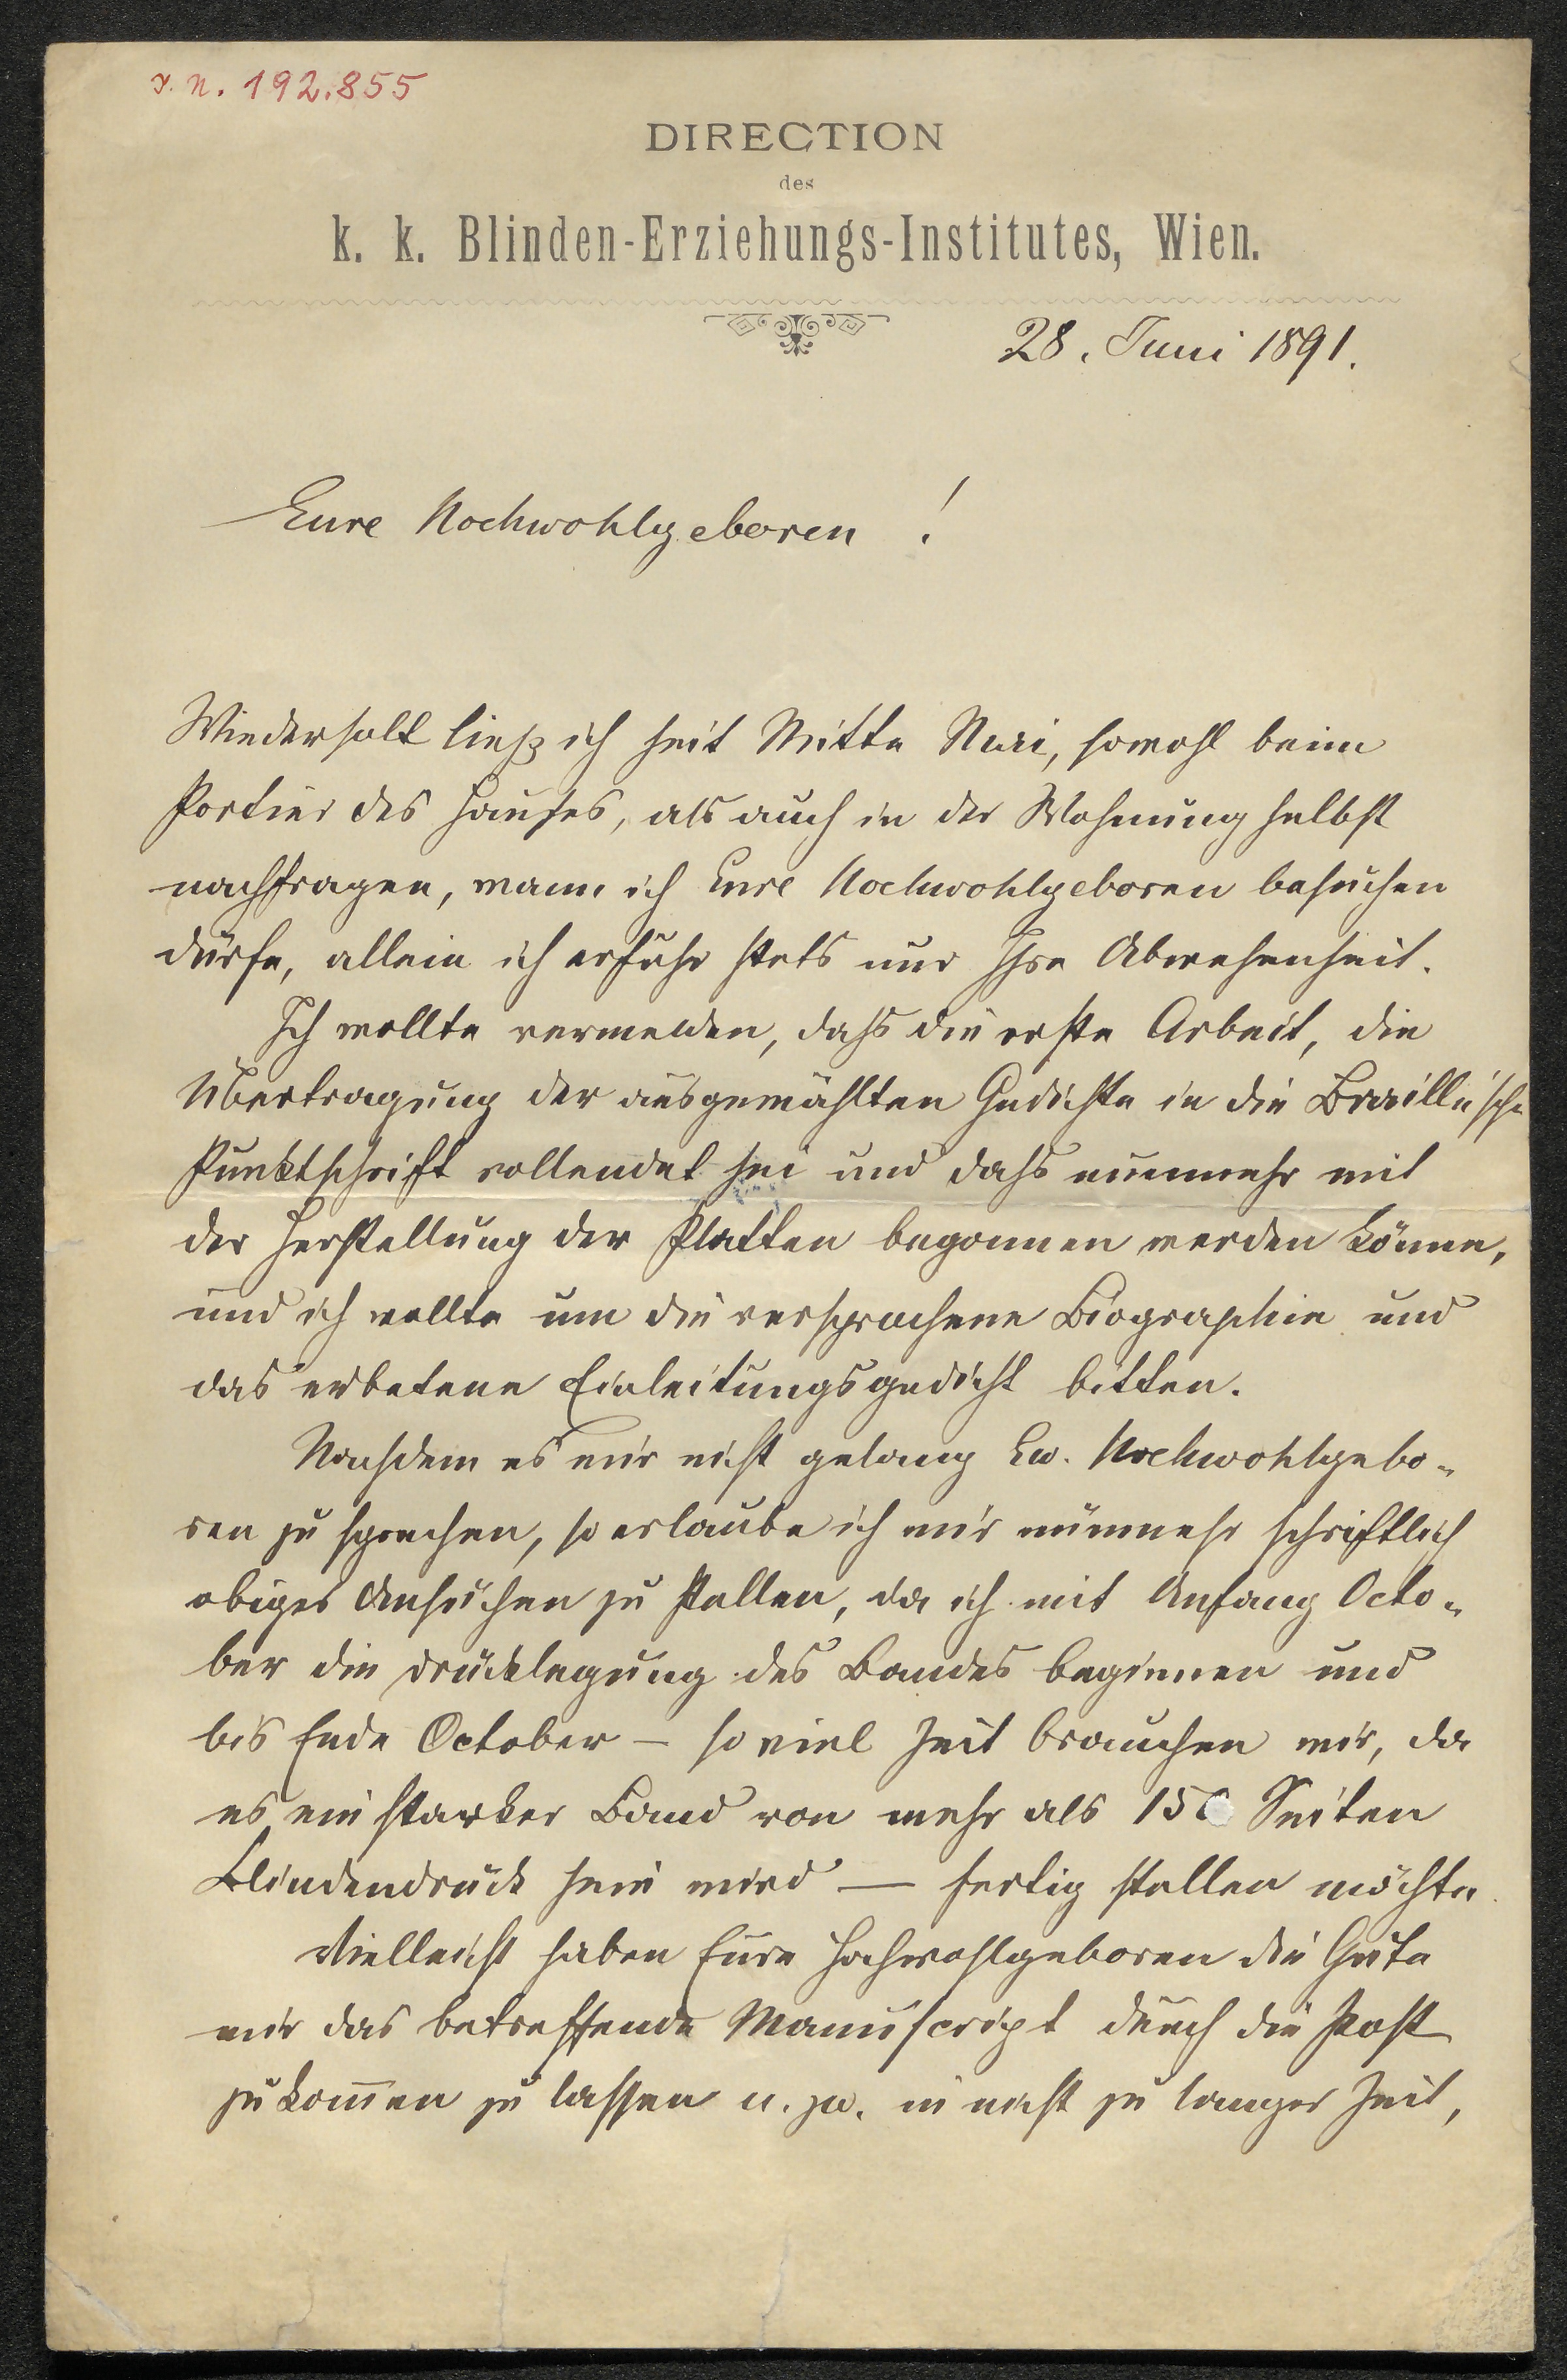 I. N. 192.855
DIRECTION
des
k. k. Blinden-Erziehungs-Institutes, Wien.
28. Juni 1891.
Eure Hochwohlgeboren !
Wiederholt ließ ich seit Mitte Mai, sowohl beim
Portier des Hauses, als auch in der Wohnung selbst
nachfragen, wann ich Eure Hochwohlgeboren besuchen
dürfe, allein ich erfuhr stets nur Ihre Abwesenheit.
Ich wollte vermelden, dass die erste Arbeit, die
Übertragung der ausgewählten Gedichte in die Braille'sche
Punktschrift vollendet sei und dass nunmehr mit
der Herstellung der Platten begonnen werden könne,
und ich wollte um die versprochene Biographie und
das erbetene Einleitungsgedicht bitten.
Nachdem es mir nicht gelang Ew. Hochwohlgebo-
ren zu sprechen, so erlaube ich mir nunmehr schriftlich
obiges Ansuchen zu stellen, da ich mit Anfang Octo-
ber die Drucklegung des Bandes beginnen und
bis Ende October – so viel Zeit brauchen wir, da
es ein starker Band von mehr als 150 Seiten
Blindendruck sein wird – fertig stellen möchte.
Vielleicht haben Eure Hochwohlgeboren die Güte
mir das betreffende Manuscript durch die Post
zukom̅en zu lassen u. zw. in nicht zu langer Zeit,